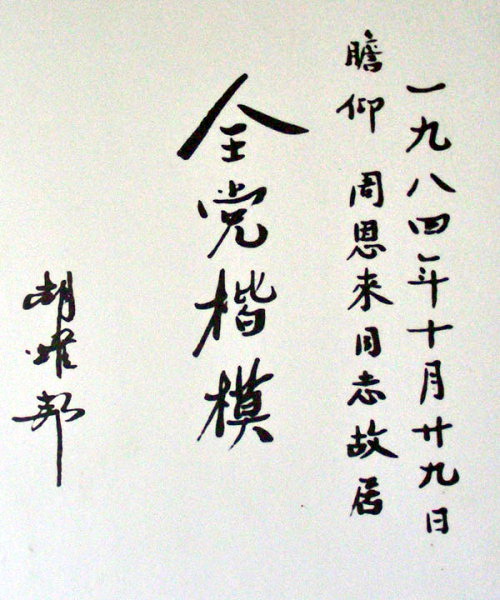 一九八四年十月廿九日
瞻仰 周恩来同志故居
全党楷模
胡耀邦